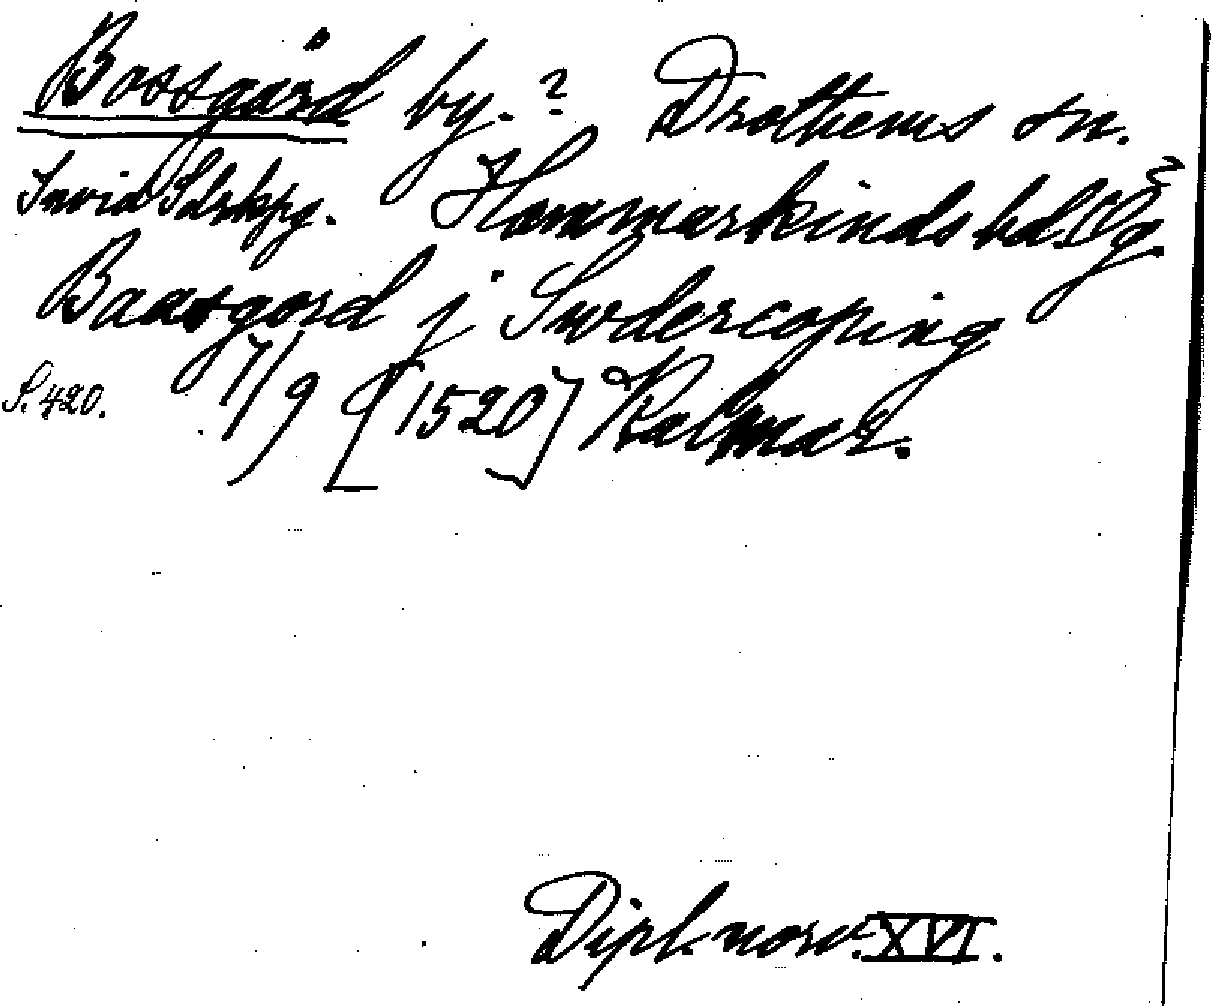 Bossgård by.? Drothems sn.
Invid Sdrkpg. Hammarkinds hd. Ög.?
Baasgord j Swdercoping
S. 420. 7/9 [1520] Kalmar.
Dipl. norv. XVI.